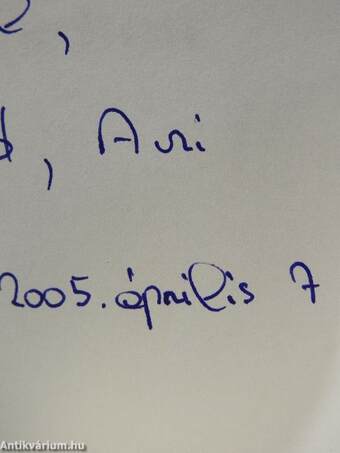 , Aui
2005. április 7
Antikvárium.hu